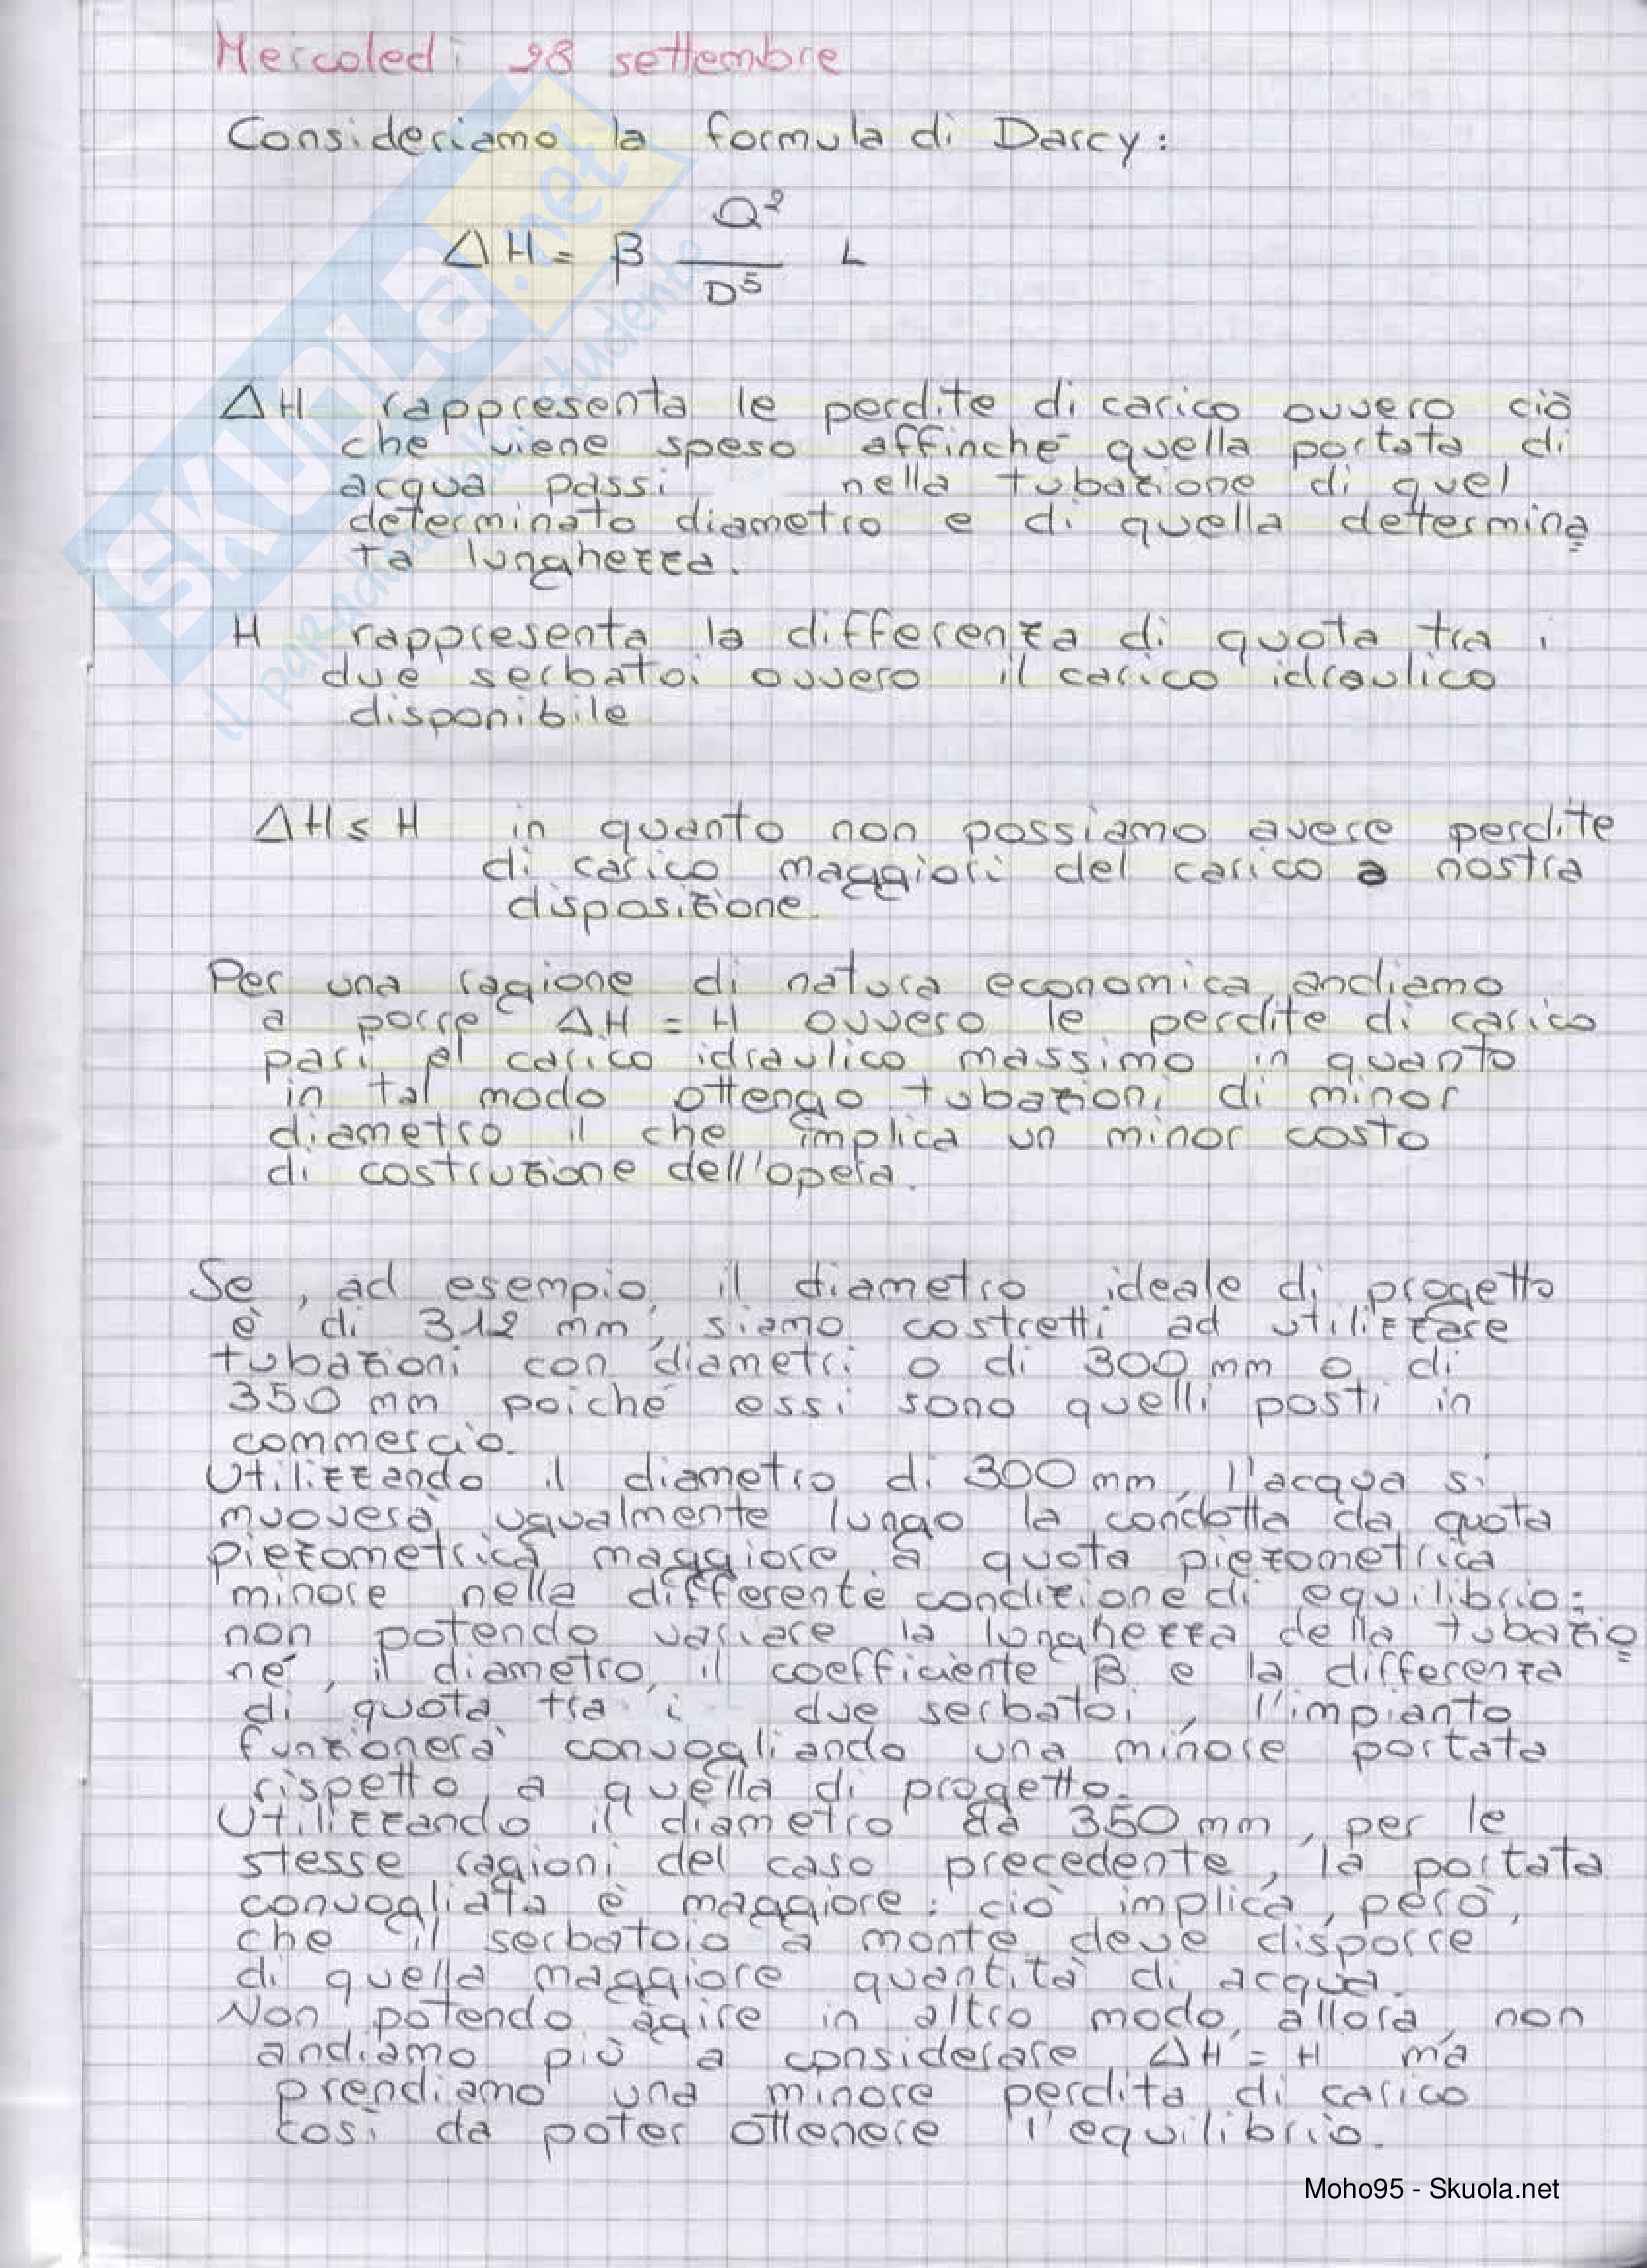 Mercoledì 28 settembre
Consideriamo la formula di Darcy:
ΔH = β Q² / D⁵ L
ΔH rappresenta le perdite di carico ovvero ciò
che viene speso affinché quella portata di
acqua passi nella tubazione di quel
determinato diametro e di quella determina=
ta lunghezza.
H rappresenta la differenza di quota tra i
due serbatoi ovvero il carico idraulico
disponibile
ΔH ≤ H in quanto non possiamo avere perdite
di carico maggiori del carico a nostra
disposizione.
Per una ragione di natura economica, andiamo
a porre ΔH = H ovvero le perdite di carico
pari al carico idraulico massimo in quanto
in tal modo ottengo tubazioni di minor
diametro il che implica un minor costo
di costruzione dell'opera.
Se, ad esempio, il diametro ideale di progetto
è di 312 mm, siamo costretti ad utilizzare
tubazioni con diametri o di 300 mm o di
350 mm poiché essi sono quelli posti in
commercio.
Utilizzando il diametro di 300 mm, l'acqua si
muoverà ugualmente lungo la condotta da quota
piezometrica maggiore a quota piezometrica
minore nella differente condizione di equilibrio:
non potendo variare la lunghezza della tubazio=
ne, il diametro, il coefficiente β e la differenza
di quota tra i due serbatoi, l'impianto
funzionerà convogliando una minore portata
rispetto a quella di progetto.
Utilizzando il diametro da 350 mm, per le
stesse ragioni del caso precedente, la portata
convogliata è maggiore: ciò implica, però,
che il serbatoio a monte deve disporre
di quella maggiore quantità di acqua.
Non potendo agire in altro modo, allora, non
andiamo più a considerare ΔH = H ma
prendiamo una minore perdita di carico
così da poter ottenere l'equilibrio.
Moho95 - Skuola.net
SKUOLA.net
il paradiso dello studente